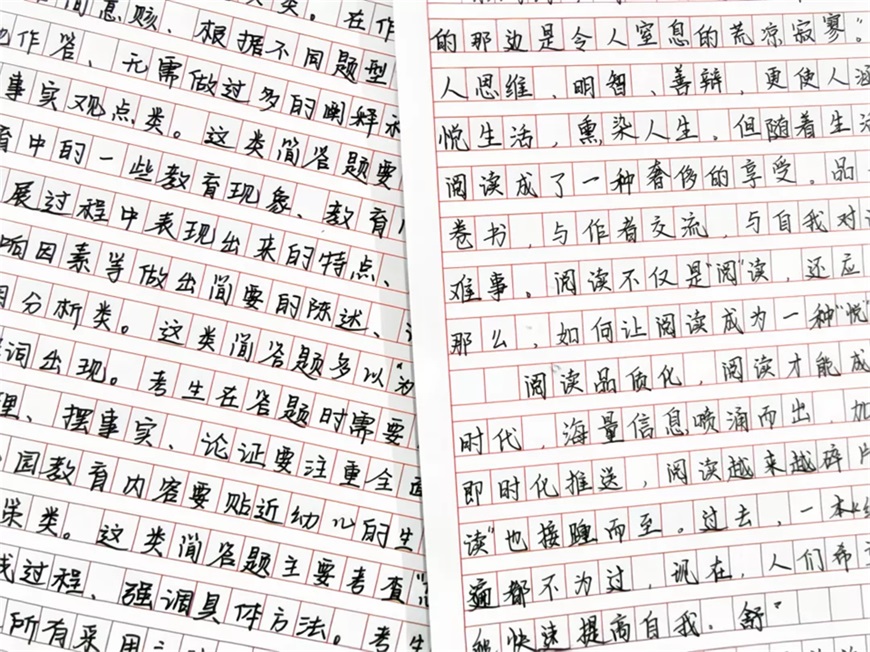 简意赅、根据不同题型
作答、无需做过多的阐释和
事实观点类。这类简答题要
育中的一些教育现象、教育
展过程中表现出来的特点、
响因素等做出简要的陈述、
因分析类。这类简答题多以“为
词出现。考生在答题时需要
理、摆事实、论证要注重全面
园教育内容要贴近幼儿的生
策类。这类简答题主要考查
过程、强调具体方法。考生
所有采用
的那边是令人窒息的荒凉寂寥。
人思维、明智、善辩,更使人涵
悦生活,熏染人生。但随着生活
阅读成了一种奢侈的享受。品
卷书,与作者交流,与自我对话
难事。阅读不仅是“阅”读,还应
那么,如何让阅读成为一种“悦”
阅读品质化,阅读才能成
时代,海量信息喷涌而出,加
即时化推送,阅读越来越碎片
读”也接踵而至。过去,一本
遍都不为过,现在,人们希
能快速提高自我。舒”